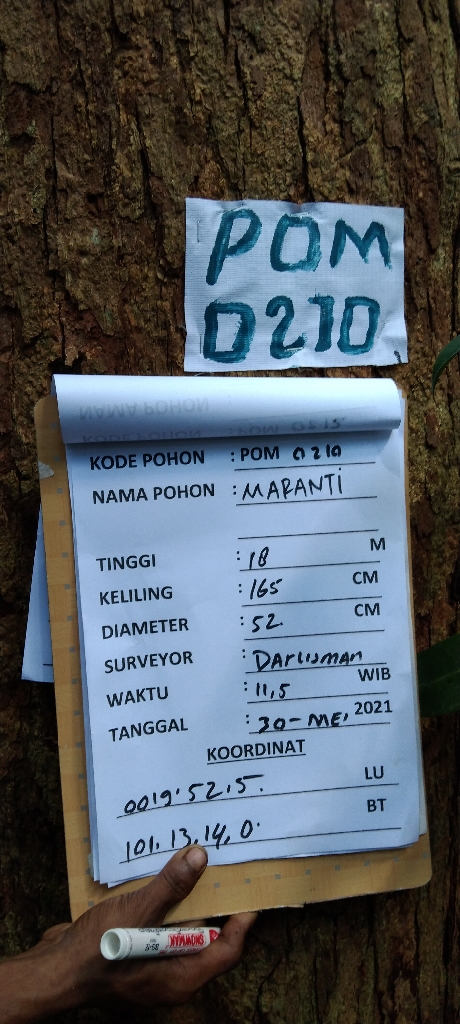 POM
0210
NAMA POHON
KODE POHON : POM 0215
KODE POHON : POM 0210
NAMA POHON : MARANTI
TINGGI : 18 M
KELILING : 165 CM
DIAMETER : 52 CM
SURVEYOR : Darlisman
WAKTU : 11,5 WIB
TANGGAL : 30-MEI 2021
KOORDINAT
0019.52.5. LU
101.13.14.0. BT
SNOWMAN